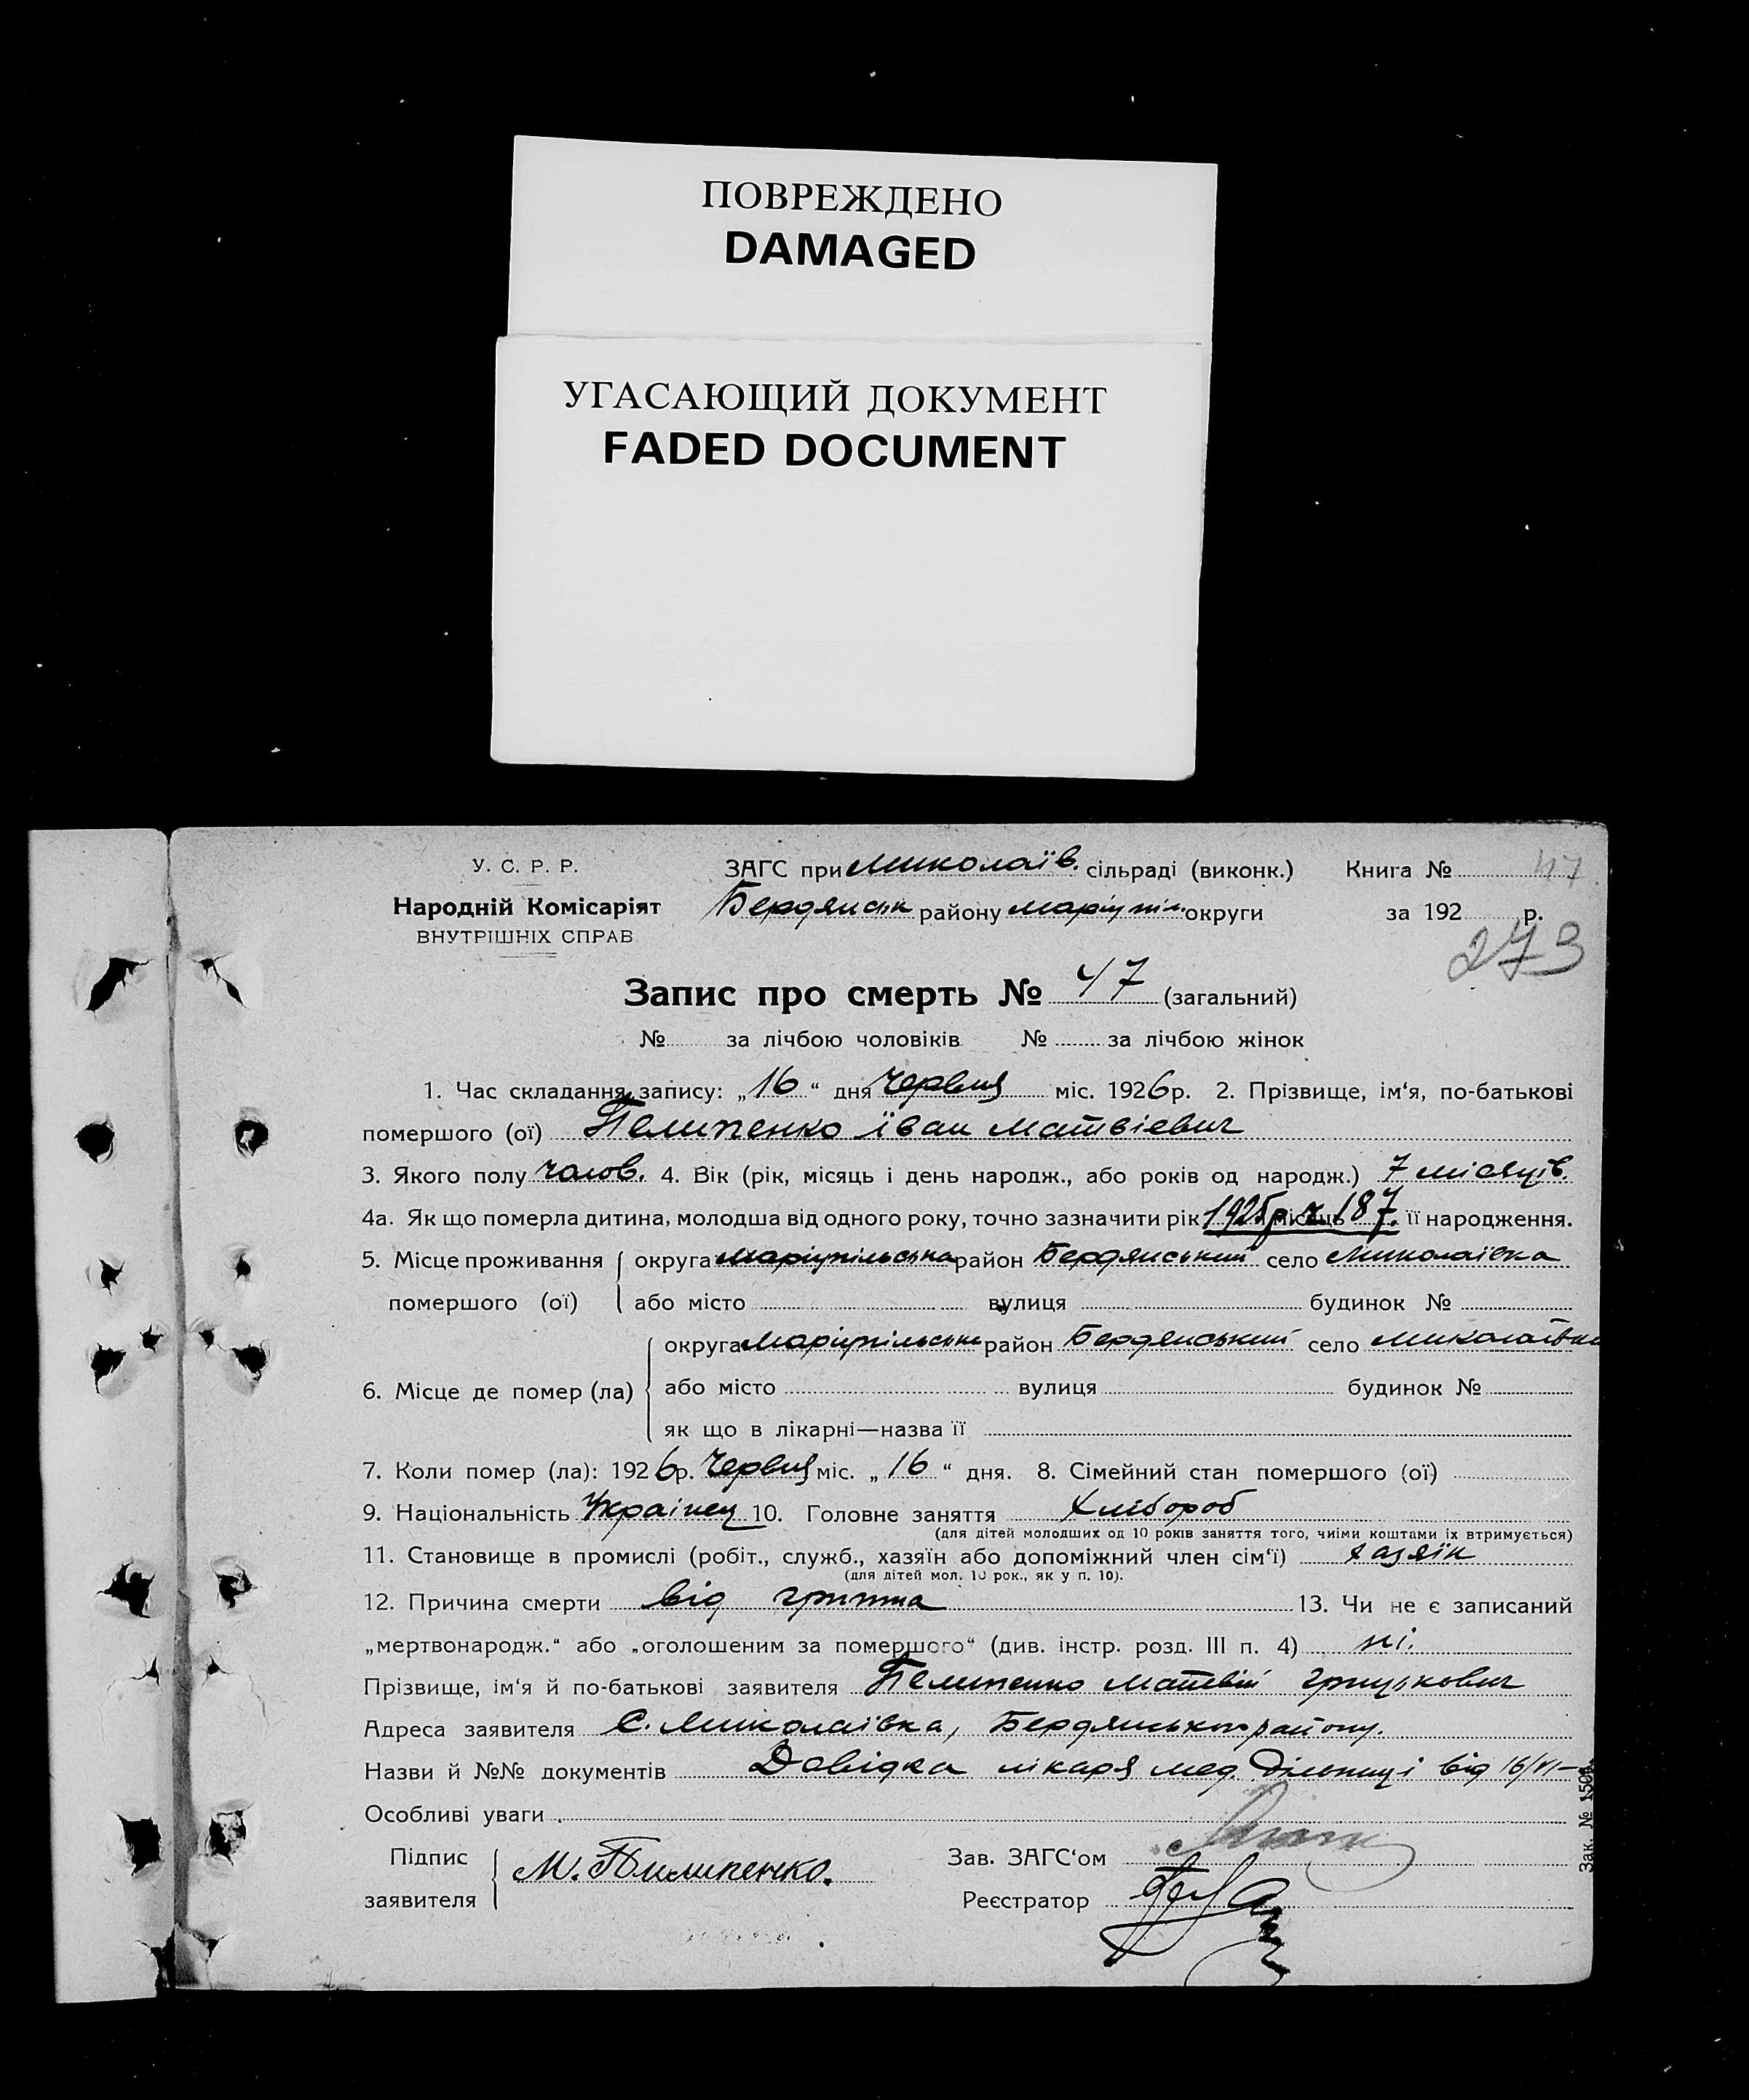 ПОВРЕЖДЕНО
DAMAGED
УГАСАЮЩИЙ ДОКУМЕНТ
FADED DOCUMENT
У. С. Р. Р.
Народній Комісаріят
ВНУТРІШНІХ СПРАВ
ЗАГС при Миколаїв. сільраді (виконк.) Книга № 47
Бердянськ району маріупіл. округи за 192 р.
273
Запис про смерть № 47 (загальний)
№ за лічбою чоловіків № за лічбою жінок
1. Час складання запису: „16“ дня червня міс. 1926 р. 2. Прізвище, ім‘я, по-батькові
помершого (ої) Пелипенко Іван Матвієвич
3. Якого полу чолов. 4. Вік (рік, місяць і день народж., або років од народж.) 7 місяців.
4а. Як що померла дитина, молодша від одного року, точно зазначити рік 1925 р. місяць її народження.
5. Місце проживання округа маріупільська район Бердянський село Миколаївка
помершого (ої) або місто вулиця будинок №
округа Маріупільська район Бердянський село Миколаївка
6. Місце де помер (ла) або місто вулиця будинок №
як що в лікарні—назва її
7. Коли помер (ла): 1926 р. червня міс. „16“ дня. 8. Сімейний стан помершого (ої)
9. Національність Українец 10. Головне заняття Хлібороб
(для дітей молодших од 10 років заняття того, чиїми коштами їх втримується)
11. Становище в промислі (робіт., служб., хазяїн або допоміжний член сім‘ї) хазяїн
(для дітей мол. 10 рок., як у п. 10).
12. Причина смерти від гриппа 13. Чи не є записаний
„мертвонародж.“ або „оголошеним за помершого“ (див. інстр. розд. III п. 4) ні.
Прізвище, ім‘я й по-батькові заявителя Пелипенко Матвій Грицькович
Адреса заявителя С. Миколаївка, Бердянського району.
Назви й №№ документів Довідка лікаря мед. дільниці від 16/VI—
Особливі уваги
Підпис заявителя М. Пилипенко.
Зав. ЗАГС‘ом
Реєстратор
Зак. № 1500